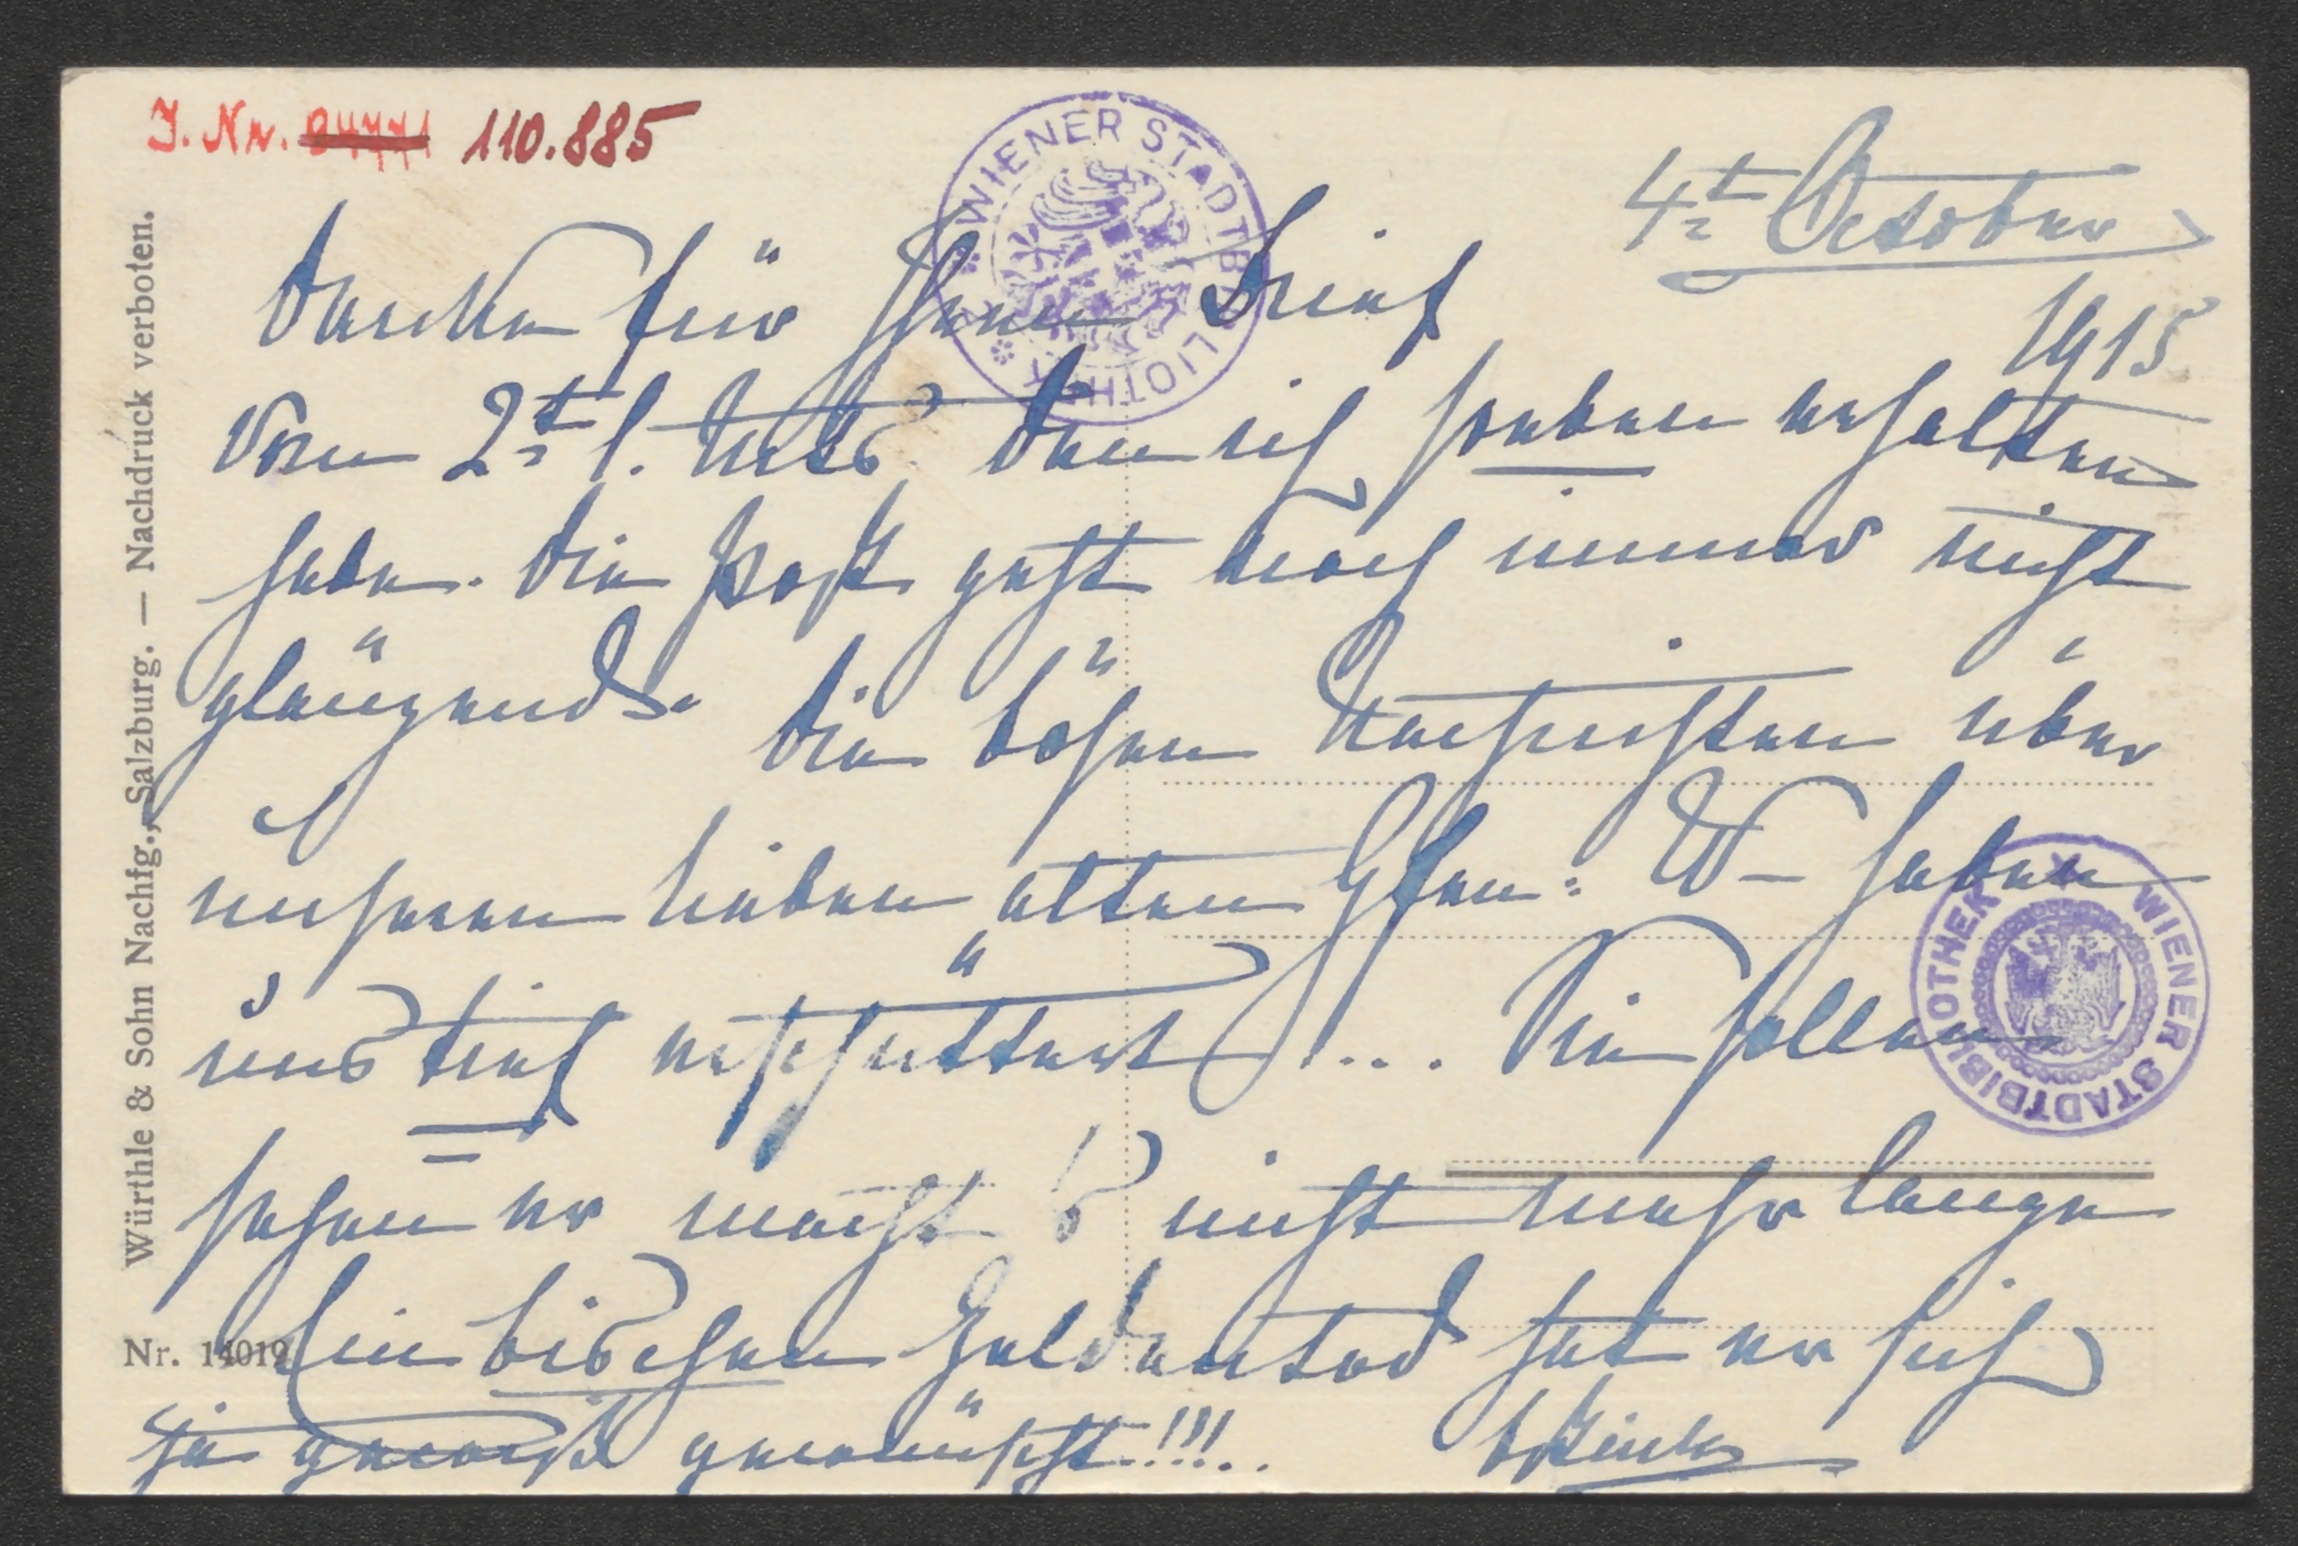 J. Nr. 04771 110.885
WIENER STADTBIBLIOTHEK
4t. October
1915
Danke für Ihren Brief
vom 2t. l. Mts den ich soeben erhalten
habe. Die Post geht noch immer nicht
glänzend. Die bösen Nachrichten über
unseren lieben alten haben
uns tief erschüttert! ... Sie sollen
sehen er macht nicht mehr lange
Ein bischen Heldentod hat er sich
ja gewiß gewünscht!!!..
WIENER STADTBIBLIOTHEK
Würthle & Sohn Nachfg., Salzburg. — Nachdruck verboten.
Nr. 14019